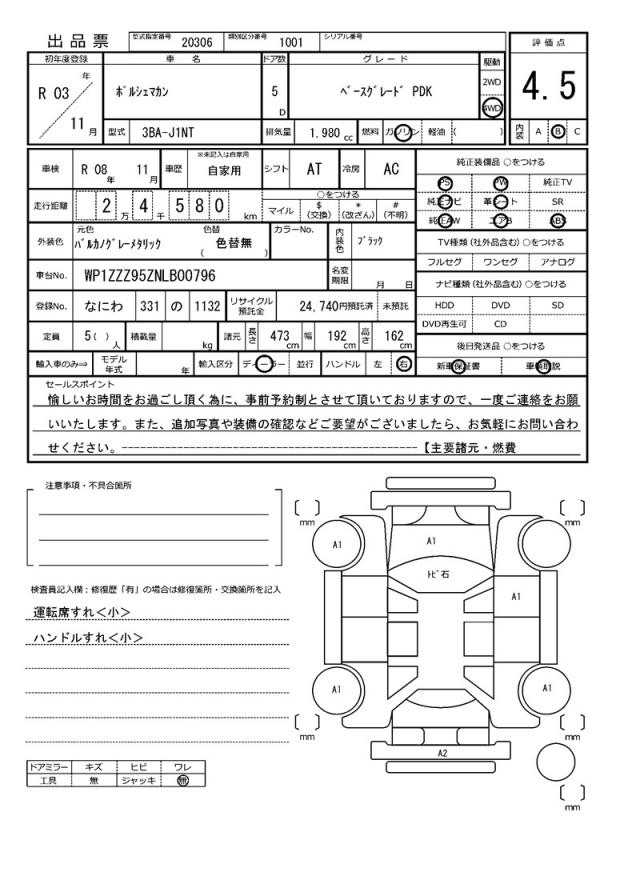 出品票 型式指定番号 20306 類別区分番号 1001 シリアル番号
評価点
4.5
初年度登録 車名 ドア数 グレード 駆動
R 03 年 11 月
ﾎﾟﾙｼｪﾏｶﾝ 5 D ﾍﾞｰｽｸﾞﾚｰﾄﾞ PDK 2WD
4WD
型式 3BA-J1NT 排気量 1.980 cc 燃料 ガソリン 軽油 ( ) 内装 A B C
車検 R 08 年 11 月 車歴 ※未記入は自家用 自家用 シフト AT 冷房 AC
純正装備品 ○をつける
PS PW 純正TV
純正ナビ 革シート SR
純正AW エアB ABS
走行距離 2 万 4 580 km
○をつける
マイル $(交換) *(改ざん) #(不明)
外装色 元色 ﾊﾞﾙｶﾉｸﾞﾚｰﾒﾀﾘｯｸ 色替 ( 色替無 ) カラーNo. 内装色 ﾌﾞﾗｯｸ
TV種類 (社外品含む) ○をつける
フルセグ ワンセグ アナログ
車台No. WP1ZZZ95ZNLB00796 名変期限 月 日
ナビ種類 (社外品含む) ○をつける
HDD DVD SD
DVD再生可 CD
登録No. なにわ 331 の 1132 リサイクル預託金 24,740円預託済 未預託
定員 5 ( ) 人 積載量 kg 諸元 長さ 473 cm 幅 192 cm 高さ 162 cm
後日発送品 ○をつける
新車保証書 車輌取説
輸入車のみ⇒ モデル年式 年 輸入区分 ディーラー 並行 ハンドル 左 右
セールスポイント
愉しいお時間をお過ごし頂く為に、事前予約制とさせて頂いておりますので、一度ご連絡をお願
いいたします。また、追加写真や装備の確認などご要望がございましたら、お気軽にお問い合わ
せください。------------------------------------------------【主要諸元・燃費
注意事項・不具合箇所
検査員記入欄：修復歴「有」の場合は修復箇所・交換箇所を記入
運転席すれ＜小＞
ハンドルすれ＜小＞
ドアミラー キズ ヒビ ワレ
工具 無 ジャッキ 無
[ ] mm
[ ] mm
A1
A1
A1
ﾄﾋﾞ石
A1
A1
A1
[ ] mm
[ ] mm
A2
[ ] mm